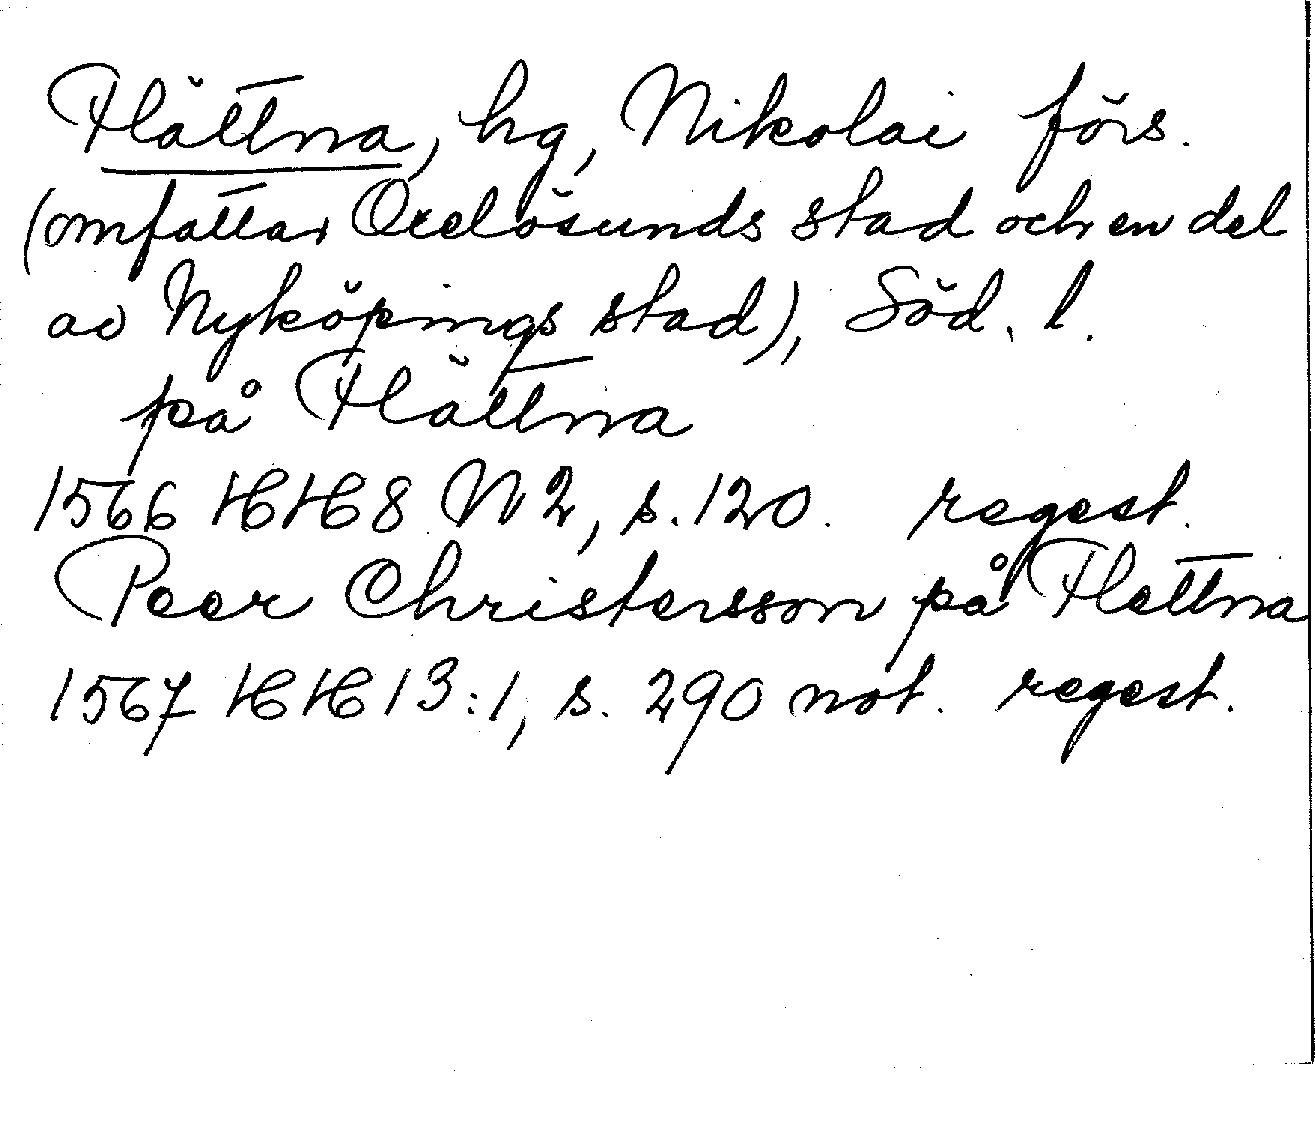 Hättna, hg, Nikolai förs.
(omfattar Oxelösunds stad och en del
av Nyköpings stad), Söd. l.
på Hättna
1566 HH 8 N 2, s. 120. regest.
Peer Christersson på Hettna
1567 HH 13:1, s. 290 not. regest.